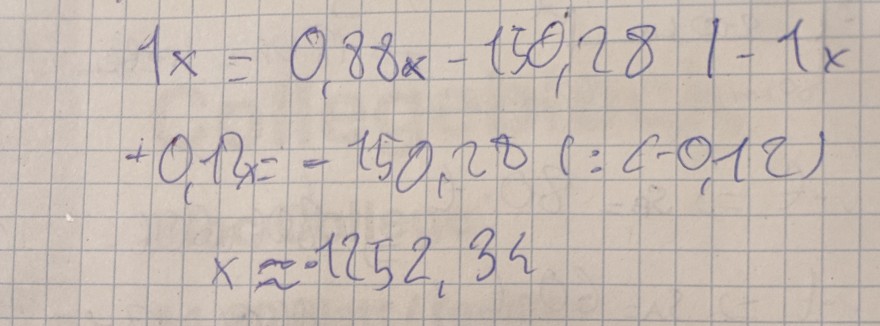 1x = 0,88x - 150,28 | - 1x
+0,12x = - 150,28 | : (-0,12)
x ≈ -1252,34